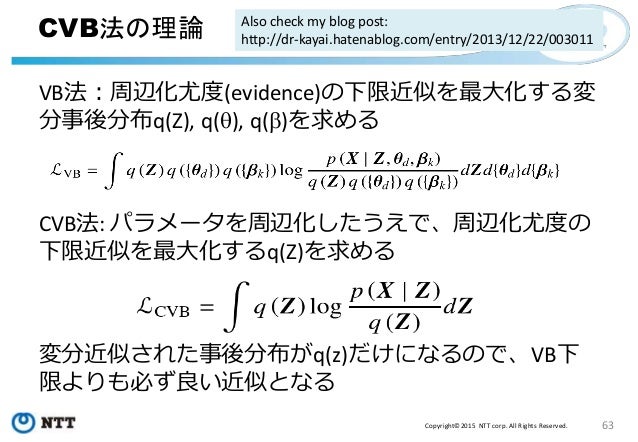 CVB法の理論
Also check my blog post:
http://dr-kayai.hatenablog.com/entry/2013/12/22/003011
VB法：周辺化尤度(evidence)の下限近似を最大化する変
分事後分布q(Z), q(θ), q(β)を求める
ℒ_VB = ∫ q(Z) q({θ_d}) q({β_k}) log p(X | Z, θ_d, β_k) / q(Z) q({θ_d}) q({β_k}) dZd{θ_d}d{β_k}
CVB法: パラメータを周辺化したうえで、周辺化尤度の
下限近似を最大化するq(Z)を求める
ℒ_CVB = ∫ q(Z) log p(X | Z) / q(Z) dZ
変分近似された事後分布がq(z)だけになるので、VB下
限よりも必ず良い近似となる
NTT
Copyright©2015 NTT corp. All Rights Reserved.
63